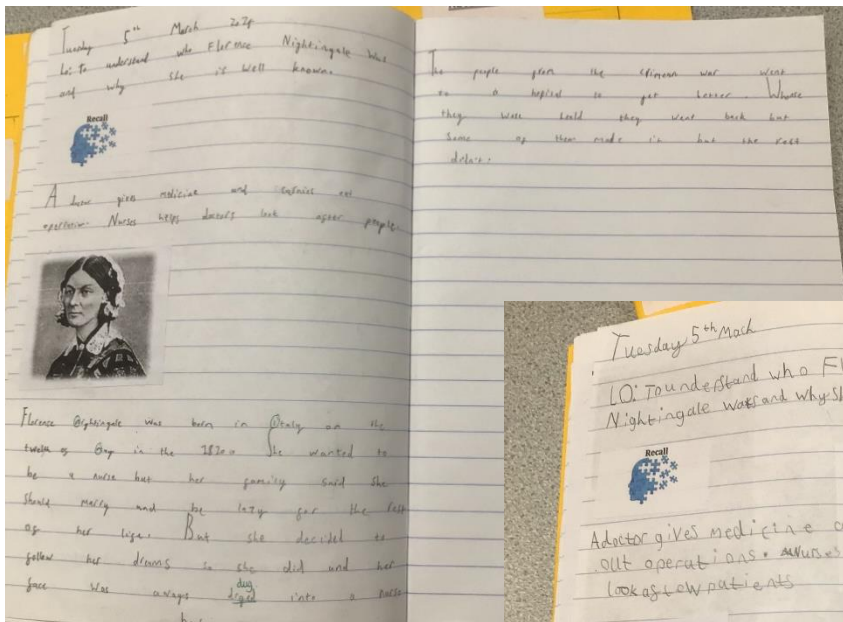 Tuesday 5th March 2024
LO: To understand who Florence Nightingale was
and why she is well known.
Recall
A doctor gives medicine and out
operation. Nurses helps doctors look after people.
Florence Nightingale was born in Italy on the
of in the 1820. She wanted to
be a nurse but her family said she
should marry and be lazy for the rest
of her life. But she decided to
follow her dreams so she did and her
face was into a nurse
The people from the crimean war went
to a hospital to get better.
they were they went back but
some of them made it but the rest
Tuesday 5th Mach
LO: To understand who Fl
Nightingale was and why s
Recall
A doctor gives medicine
out operations. Nurses
look patients